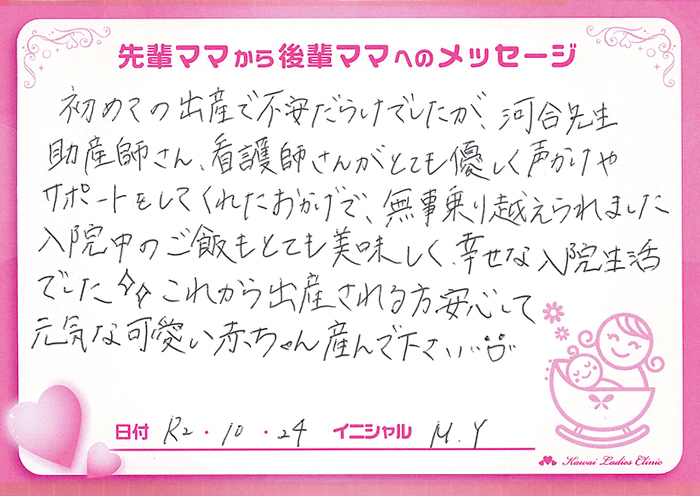 先輩ママから後輩ママへのメッセージ
初めての出産で不安だらけでしたが、河合先生
助産師さん、看護師さんがとても優しく声かけや
サポートをしてくれたおかげで、無事乗り越えられました
入院中のご飯もとても美味しく、幸せな入院生活
でした✧✧ これから出産される方安心して
元気な可愛い赤ちゃん産んで下さい
日付 R2・10・24 イニシャル M.Y
Kawai Ladies Clinic